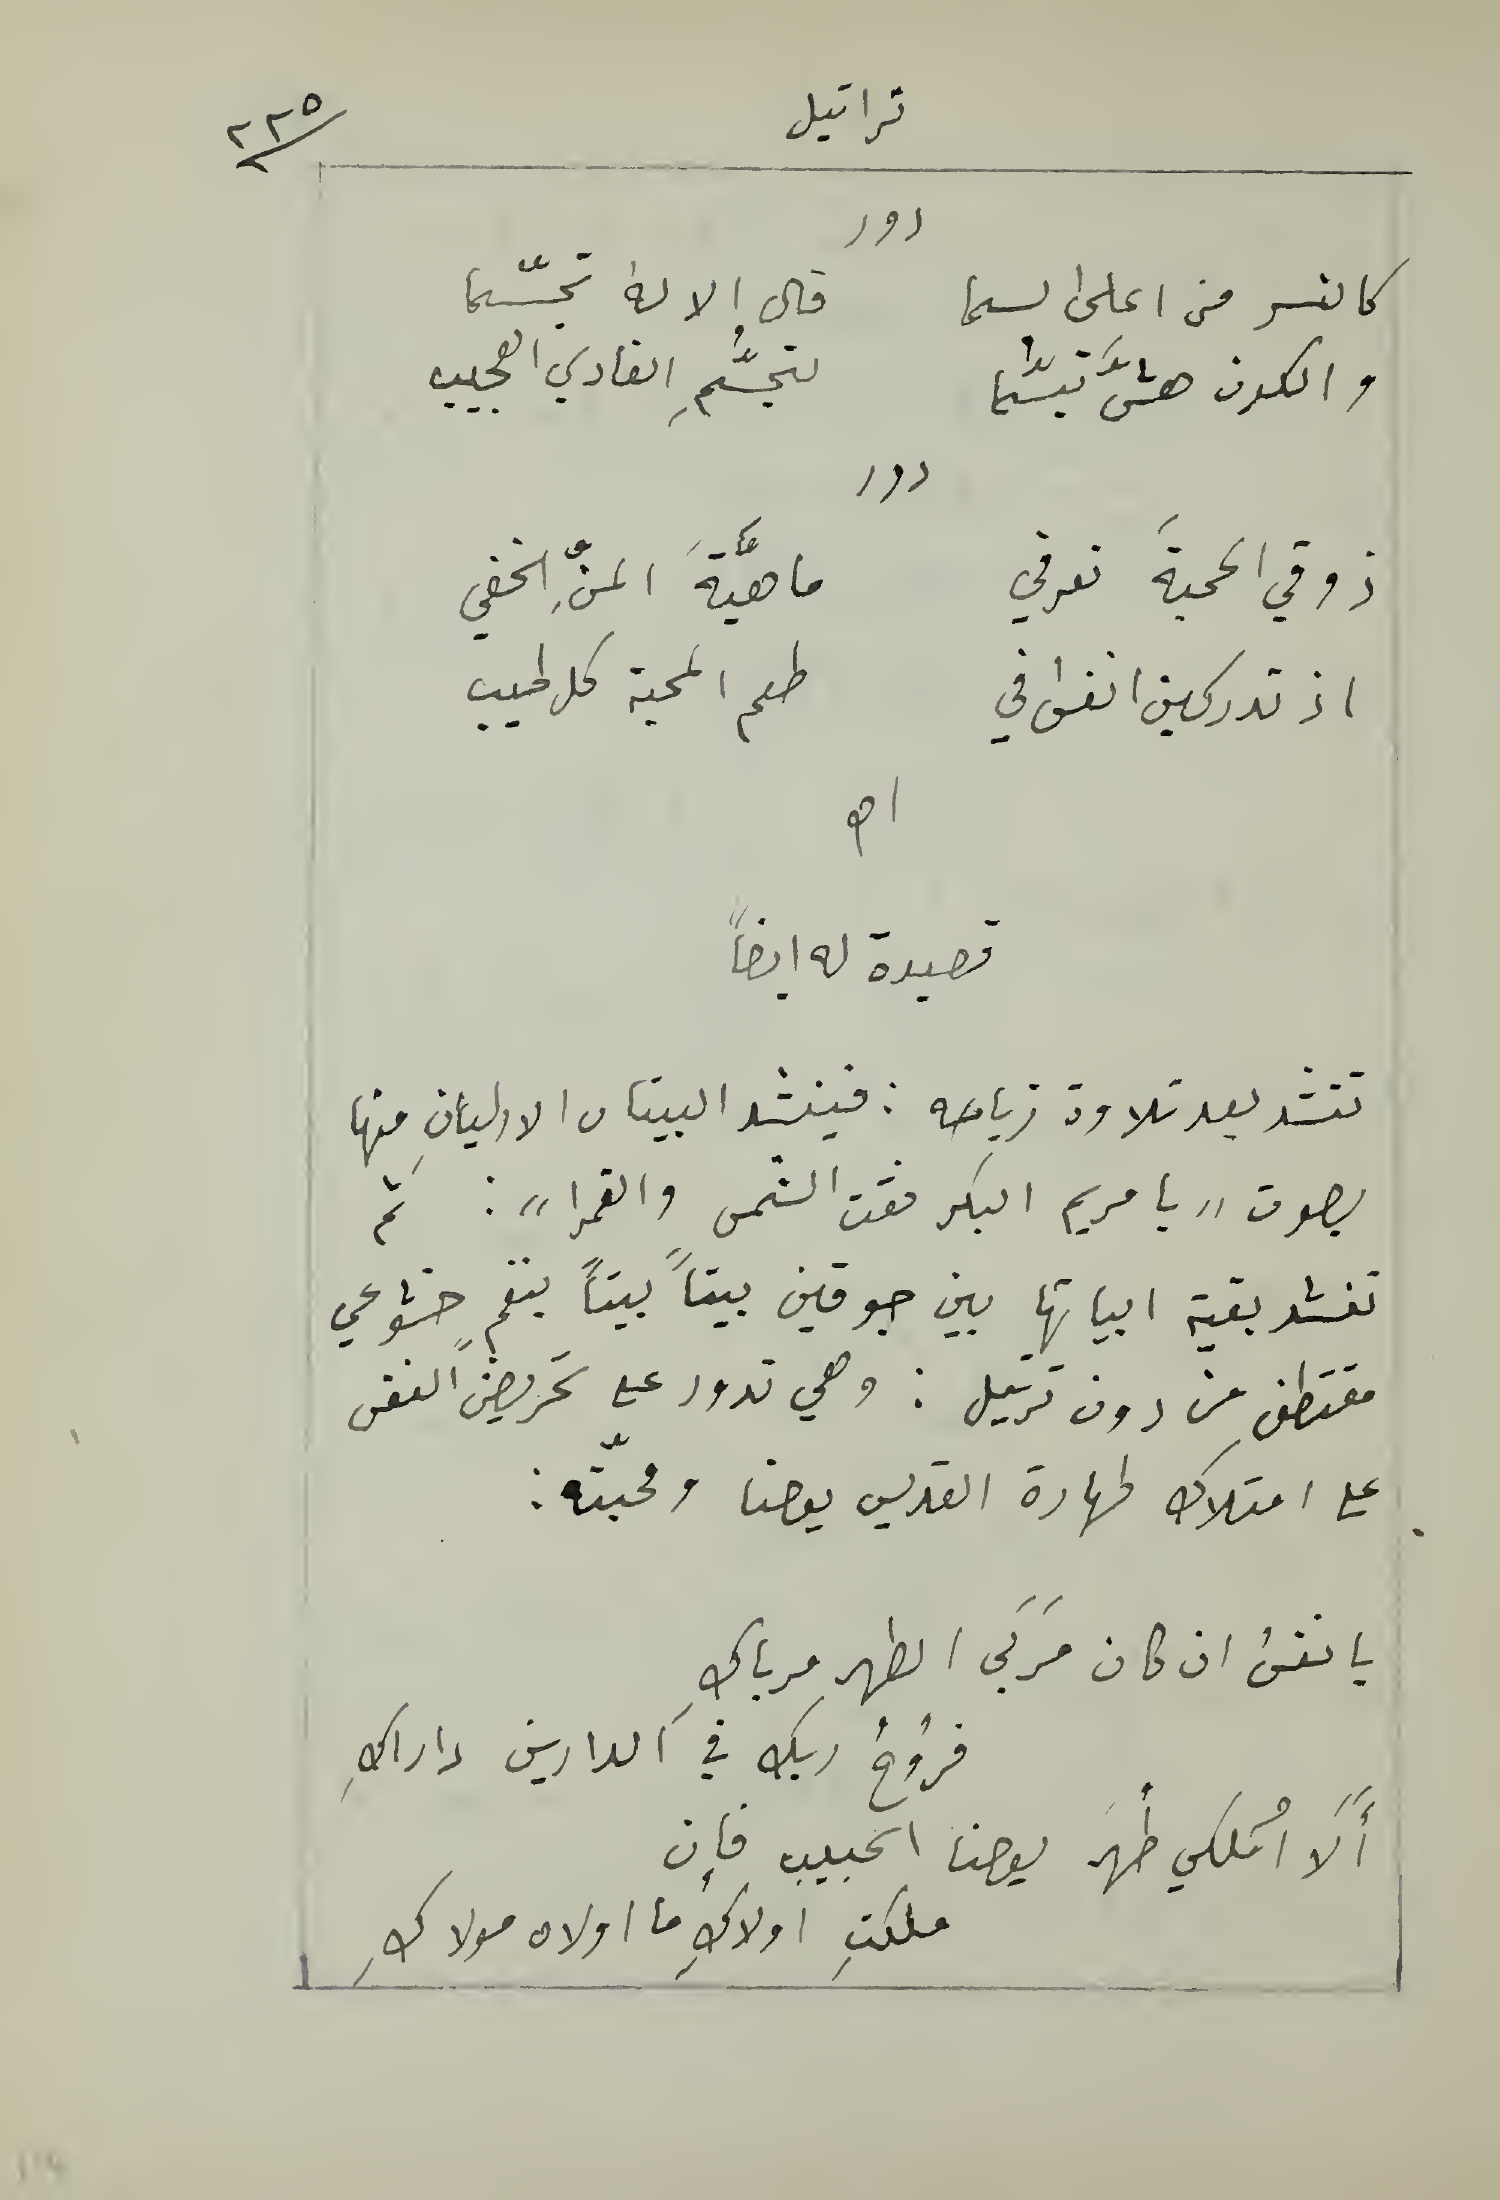 تراتيل
٢٢٥
دور
كالنسر من اعلى السما قال الاله تجسّما
والكون هشَّ تبسّما لتجسُّمِ الفادي العجيب
دور
ذوقي المحبةَ تعرفي ما هيَّةَ المنِّ الخفي
اذ تدركين النفس في طعم المحبة كل طيب
اه
قصيدة له ايضاً
تنشد بعد تلاوة زياحه : فينشد البيتان الاوليانِ منها
بصوت " يا مريم البكر فقت الشمس والقمرا " : ثم
تنشد بقية ابياتها بين جوقين بيتاً بيتاً بنغمٍ خشوعي
مقتطفٍ من دون ترتيل : وهي تدور على تحريض النفس
على امتلاك طهارة القديس يوحنا ومحبّته :
يا نفسُ ان كان مَرَبَى الطهرِ مرباكِ
فرُوحُ ربك في الدارين داراكِ
أَلَا امْلكي طُهرَ يوحنا الحبيب فإن
ملكتِ اولاكِ ما اولاه مولاكِ